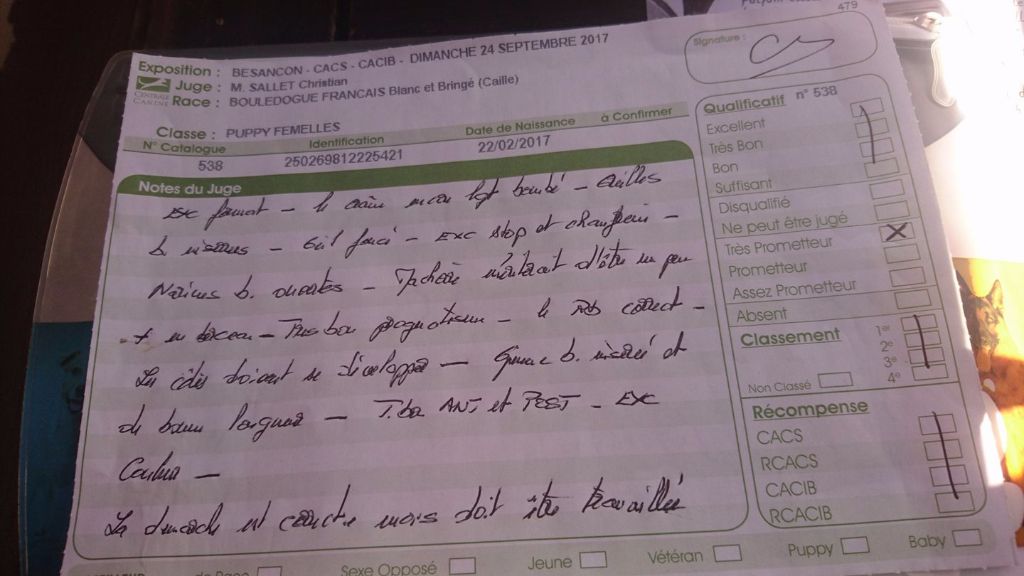 479
Exposition : BESANCON - CACS - CACIB - DIMANCHE 24 SEPTEMBRE 2017
Signature :
CENTRALE CANINE
Juge : M. SALLET Christian
Race : BOULEDOGUE FRANCAIS Blanc et Bringé (Caille)
Classe : PUPPY FEMELLES
N° Catalogue Identification Date de Naissance à Confirmer
538 250269812225421 22/02/2017
Notes du Juge
Exc format - le crâne encor lgt bombé - Oreilles
b. insérées - Oeil foncé - Exc stop et chanfrein -
Narines b. ouvertes - Mchoire mériterait d'être un peu
+ en - Très bon prognatisme - le correct -
Les côtes doivent se développer - b. insérée et
de bonne longueur - T. bon ANT et POST - Exc
Couleur -
La démarche est correcte mais doit être travaillée
Qualificatif n° 538
Excellent
Très Bon
Bon
Suffisant
Disqualifié
Ne peut être jugé
Très Prometteur X
Prometteur
Assez Prometteur
Absent
Classement 1er
2e
3e
Non Classé 4e
Récompense
CACS
RCACS
CACIB
RCACIB
de Race Sexe Opposé Jeune Vétéran Puppy Baby